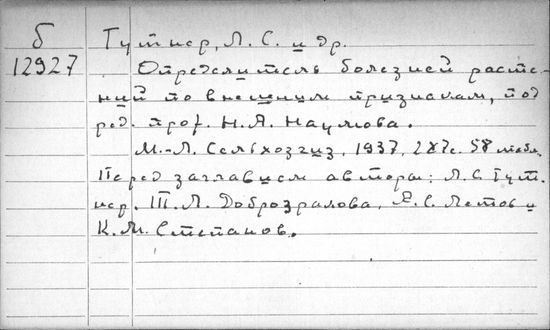 б
12927
Гутнер, Л. С. и др.
Определитель болезней расте-
ний по внешним признакам, под
ред. проф. Н.А. Наумова.
М.-Л. Сельхозгиз, 1937, 287с. 58 табл.
Перед заглавием авторы: Л.С. Гут-
нер, Т.Л. Доброзракова, Я.С. Летов и
К.М. Степанов.